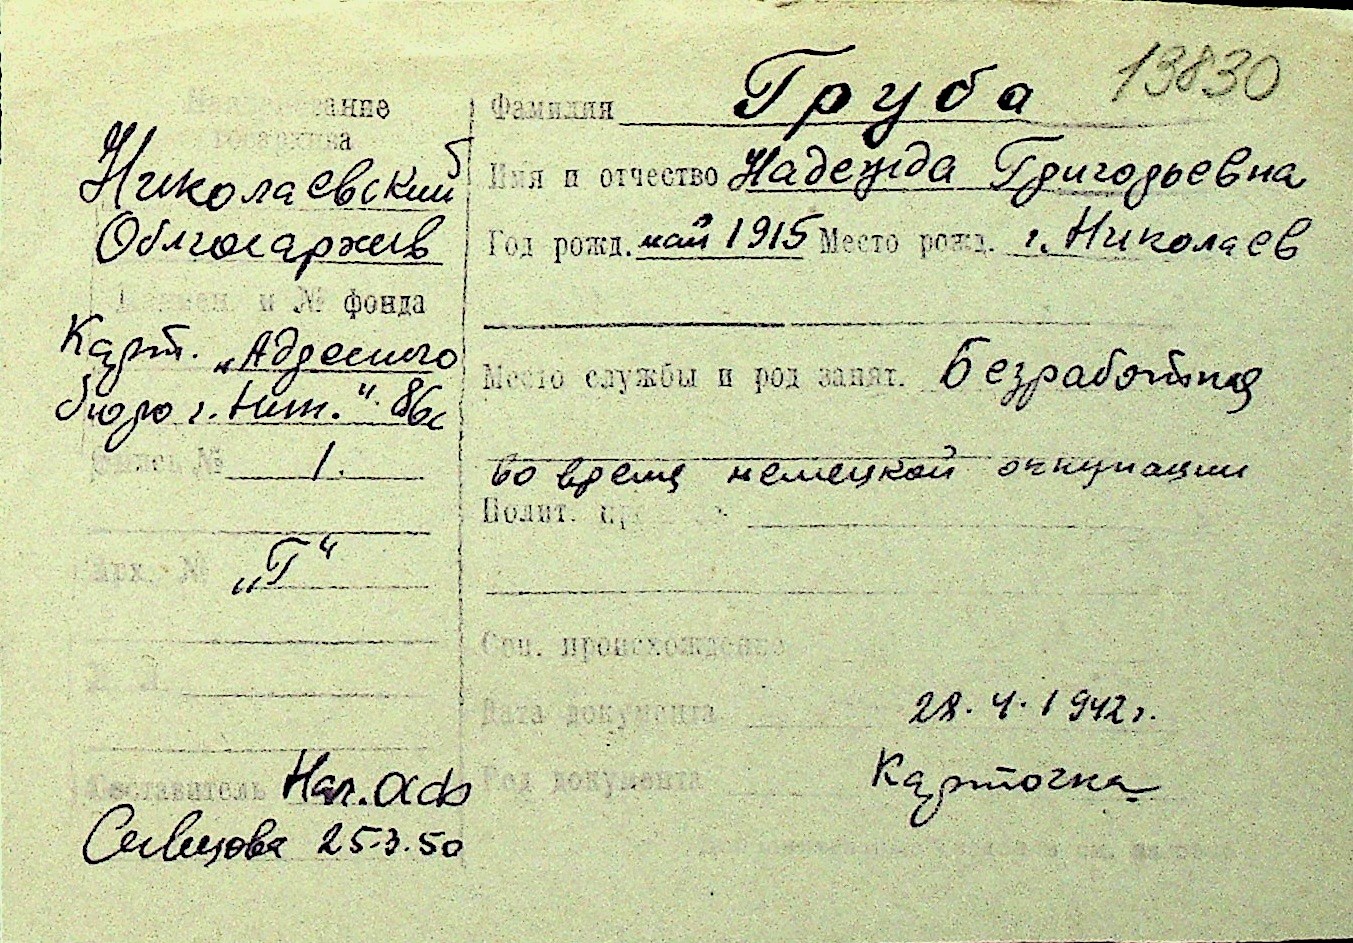 13830
Наименование
госархива
Николаевский
Облгосархив
Наимен. и № фонда
Карт. „Адресного
бюро г. Ник." 86с
Опись № 1.
Арх. № „Г"
Составитель Нач. оdo
25.3.50
Фамилия Груба
Имя и отчество Надежда Григорьевна
Год рожд. май 1915 Место рожд. г. Николаев
Место службы и род занят. Безработная
во время немецкой оккупации
Полит.
Соц. происхождение
Дата документа 28.4.1942 г.
Род документа Карточка